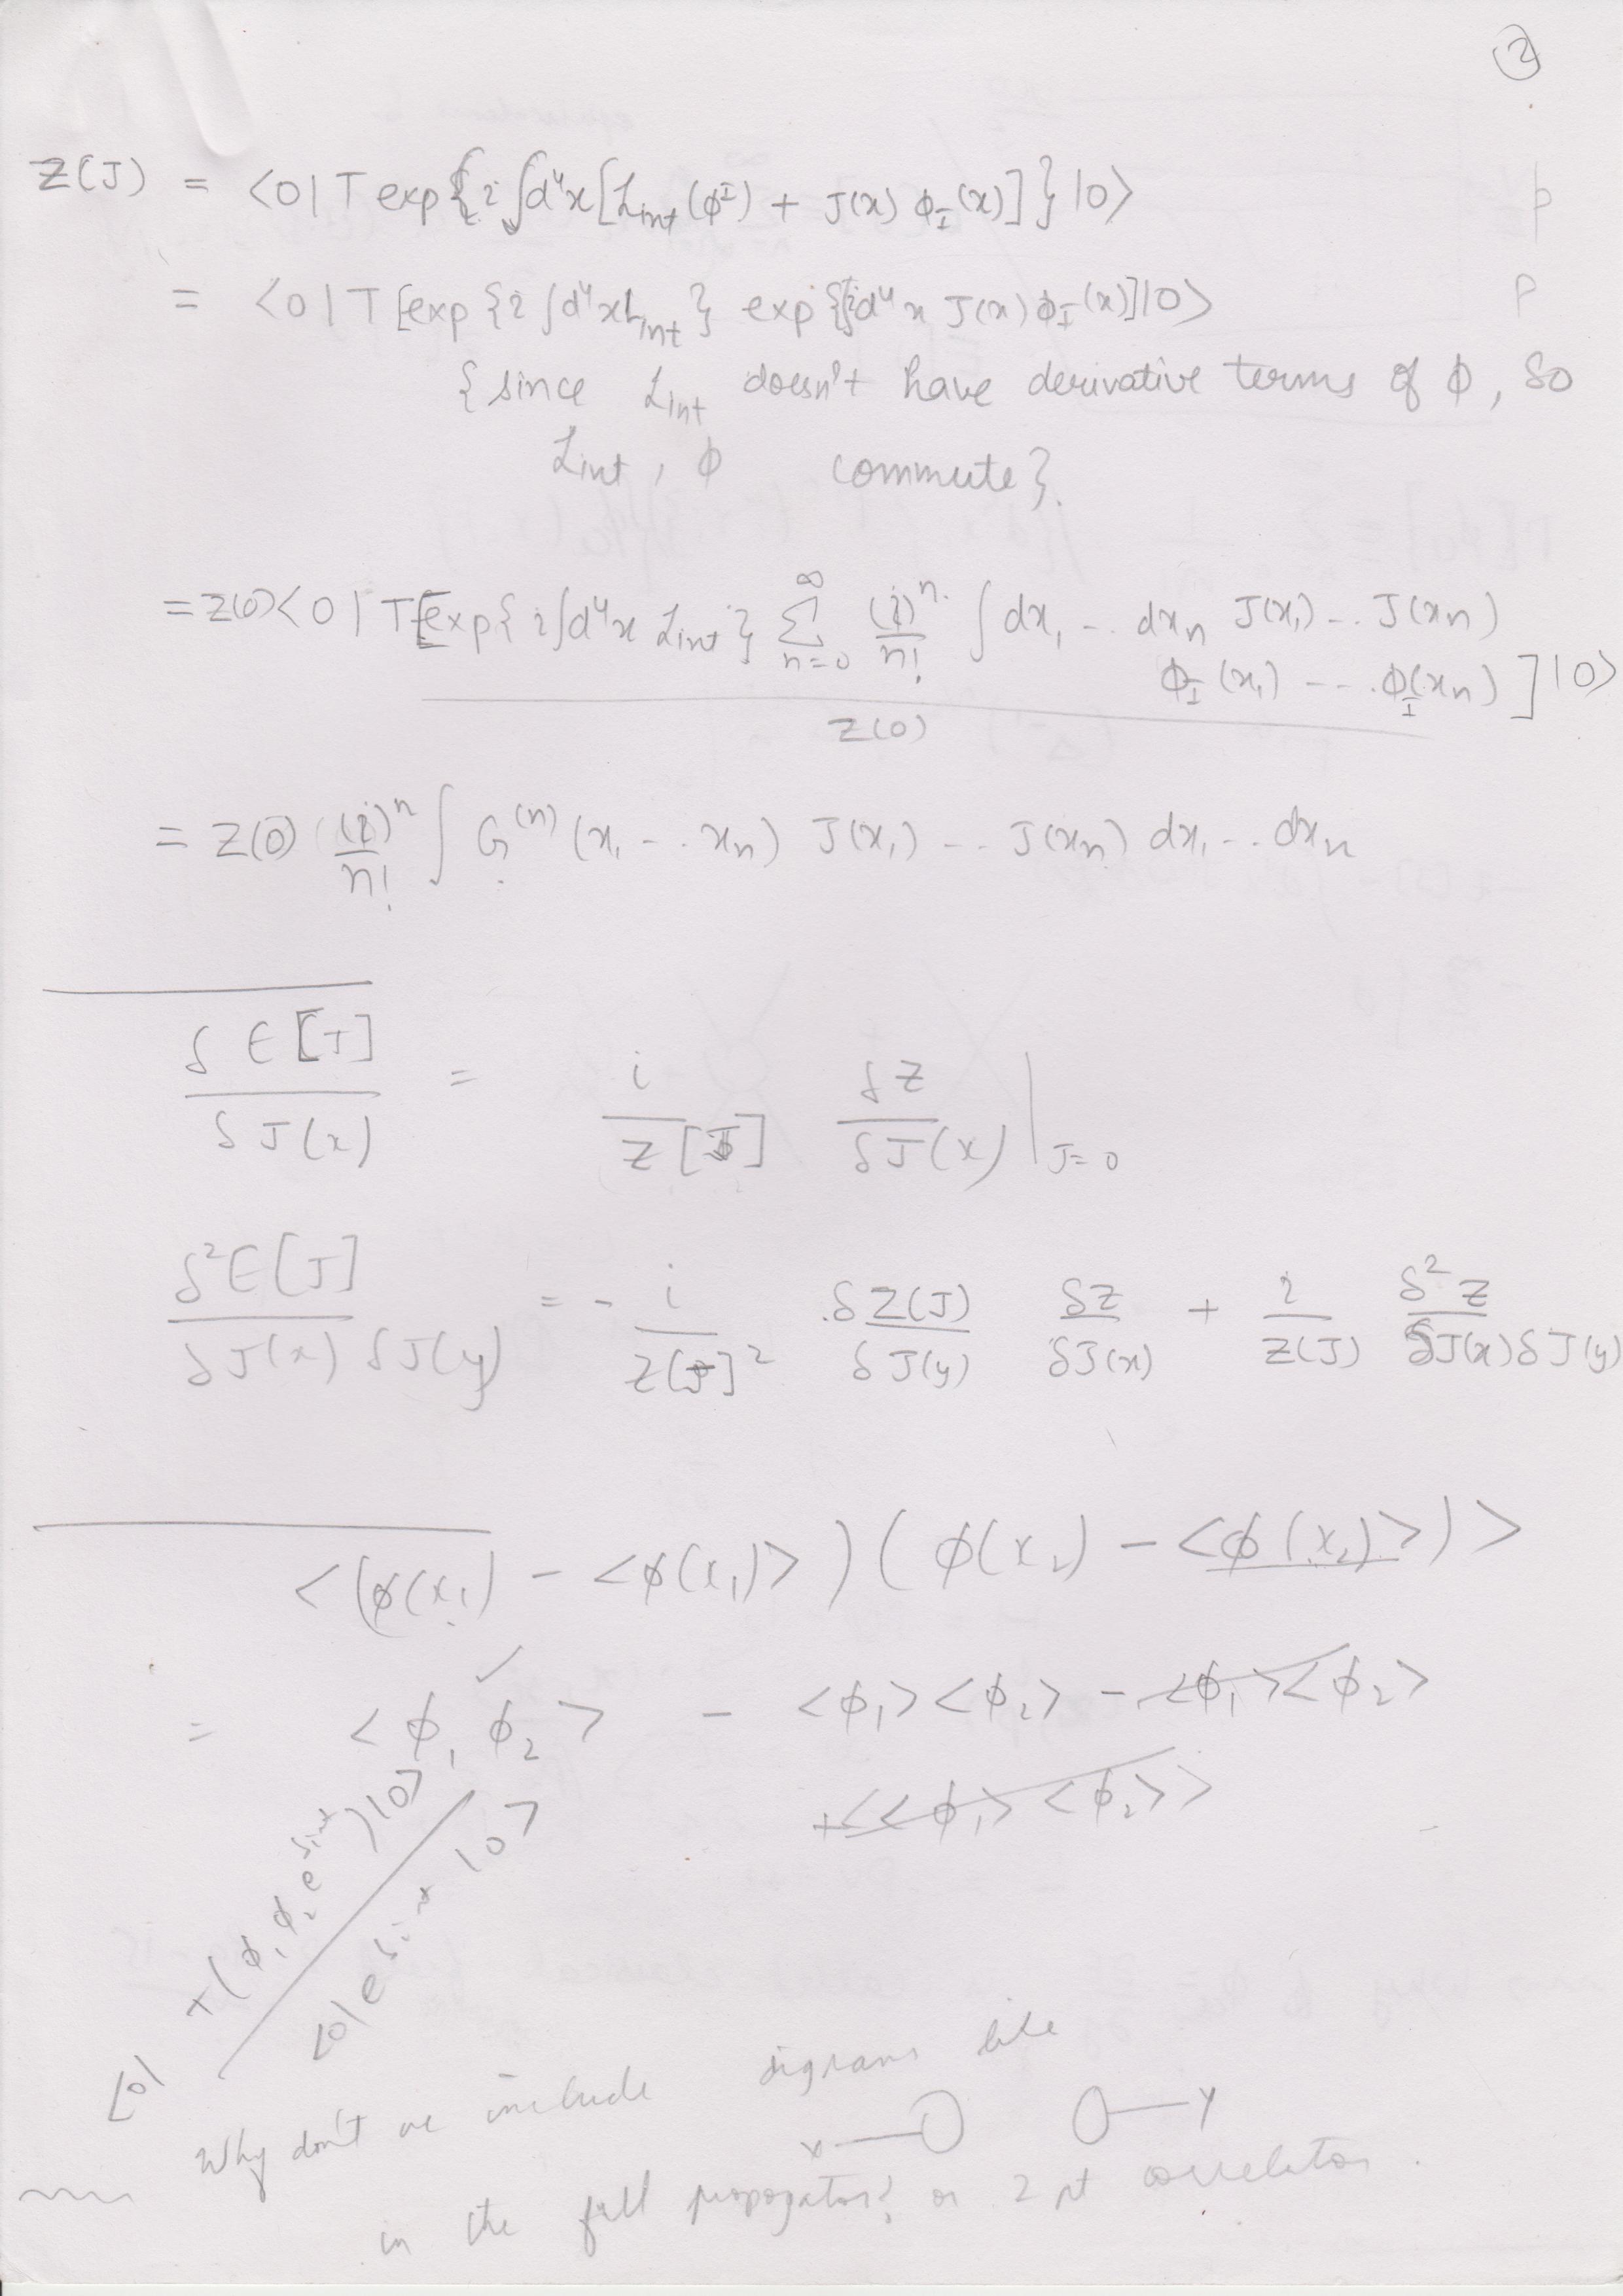 2
Z(J) = <0|T exp{i∫d⁴x[ℒint(φᴵ) + J(x) φ_I(x)]}|0>
= <0|T[exp{i∫d⁴xLint} exp{i∫d⁴x J(x)φ_I(x)]|0>
{since ℒint doesn't have derivative terms of φ, so
ℒint, φ commute}.
= Z(0)<0|T[exp{i∫d⁴x ℒint} ∑_{n=0}^{∞} (i)ⁿ/n! ∫dx₁ -- dxₙ J(x₁) -- J(xₙ)
φ_I(x₁) --- φ_I(xₙ)]|0>
Z(0)
= Z(0) (i)ⁿ/n! ∫ G⁽ⁿ⁾(x₁ -- xₙ) J(x₁) -- J(xₙ) dx₁ -- dxₙ
δE[J]/δJ(x) = i/Z[J] δZ/δJ(x)|_{J=0}
δ²E[J]/δJ(x)δJ(y) = - i/Z[J]² δZ(J)/δJ(y) δZ/δJ(x) + i/Z(J) δ²Z/δJ(x)δJ(y)
<(φ(x₁) - <φ(x₁)>)(φ(x₂) - <φ(x₂)>)>
= <φ₁φ₂> - <φ₁><φ₂> - <φ₁><φ₂>
+<<φ₁><φ₂>>
<0| T(φ₁φ₂e^{Sint})|0>
<0|e^{Sint}|0>
Why don't we include digrams like
x y
in the full propogator? or 2 pt correlator.